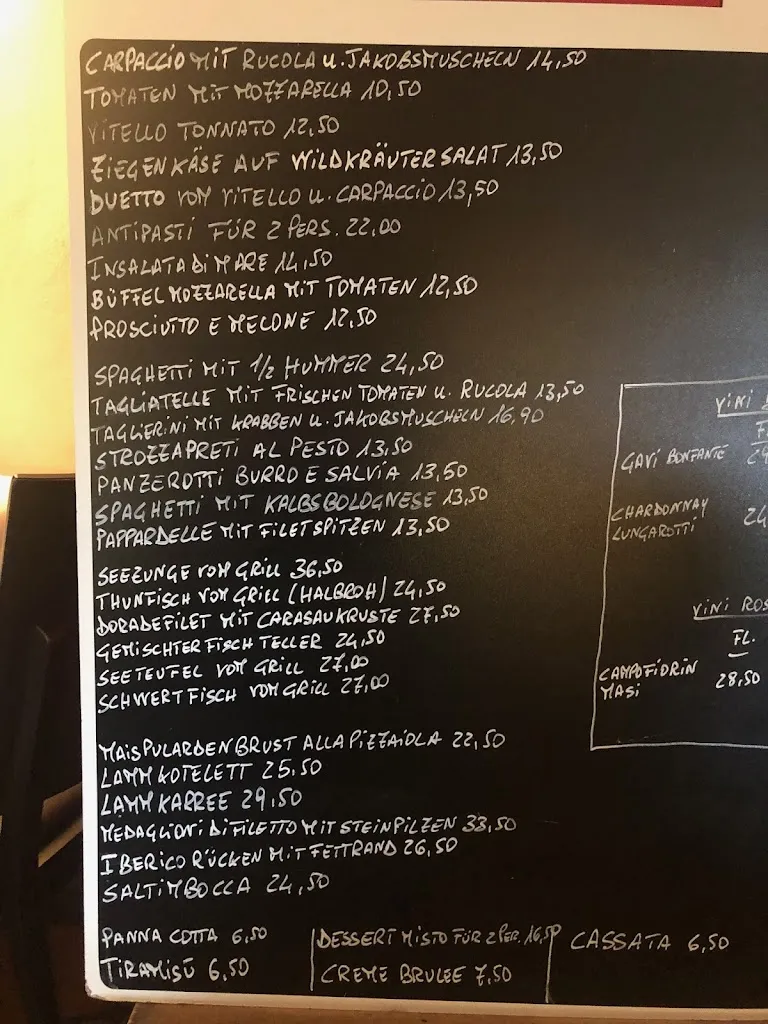 CARPACCIO MIT RUCOLA u. JAKOBSMUSCHELN 14,50
TOMATEN MIT MOZZARELLA 10,50
VITELLO TONNATO 12,50
ZIEGENKÄSE AUF WILDKRÄUTERSALAT 13,50
DUETTO VOM VITELLO u. CARPACCIO 13,50
ANTIPASTI FÜR 2 PERS. 22,00
INSALATA DI MARE 14,50
BÜFFELMOZZARELLA MIT TOMATEN 12,50
PROSCIUTTO E MELONE 12,50
SPAGHETTI MIT 1/2 HUMMER 24,50
TAGLIATELLE MIT FRISCHEN TOMATEN u. RUCOLA 13,50
TAGLIERINI MIT KRABBEN u. JAKOBSMUSCHELN 16,90
STROZZAPRETI AL PESTO 13,50
PANZEROTTI BURRO E SALVIA 13,50
SPAGHETTI MIT KALBSBOLOGNESE 13,50
PAPPARDELLE MIT FILETSPITZEN 13,50
SEEZUNGE VOM GRILL 36,50
THUNFISCH VOM GRILL (HALBROH) 24,50
DORADEFILET MIT CARASAUKRUSTE 27,50
GEMISCHTER FISCH TELLER 24,50
SEETEUFEL VOM GRILL 27,00
SCHWERTFISCH VOM GRILL 27,00
MAISPULARDENBRUST ALLA PIZZAIOLA 22,50
LAMMKOTELETT 25,50
LAMMKARREE 29,50
MEDAGLIONI DI FILETTO MIT STEINPILZEN 33,50
IBERICO RÜCKEN MIT FETTRAND 26,50
SALTIMBOCCA 24,50
PANNA COTTA 6,50
TIRAMISÙ 6,50
DESSERT MISTO FÜR 2 PER. 16,50
CREME BRULEE 7,50
CASSATA 6,50
VINI
GAVI BONFANTE
CHARDONNAY 24
LUNGAROTTI
VINI ROS
FL.
CAMPOFIORIN 28,50
MASI